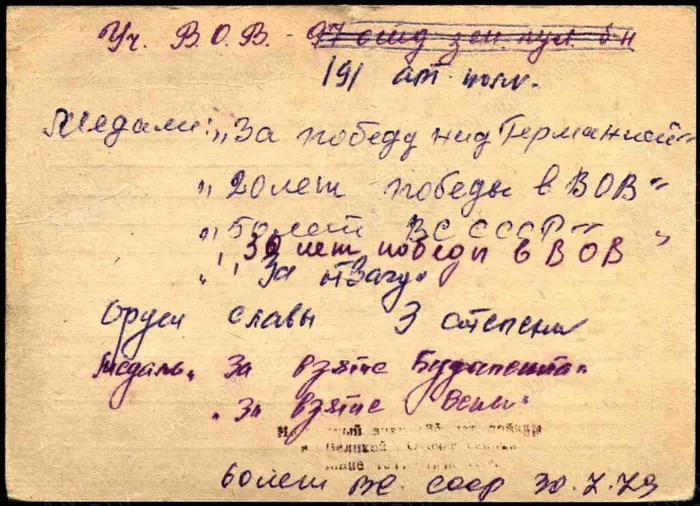 Уч. В.О.В. - 97 отд зен. пул. б-н
191 арт. полк.
Медали: „За победу над Германией"
„20 лет победы в ВОВ"
„50 лет ВС СССР"
„30 лет победы в ВОВ"
„За отвагу"
Орден славы 3 степени
Медаль „За взятие Будапешта"
„За взятие Вены"
победы
Великой
60 лет ВС. СССР 30.X.79